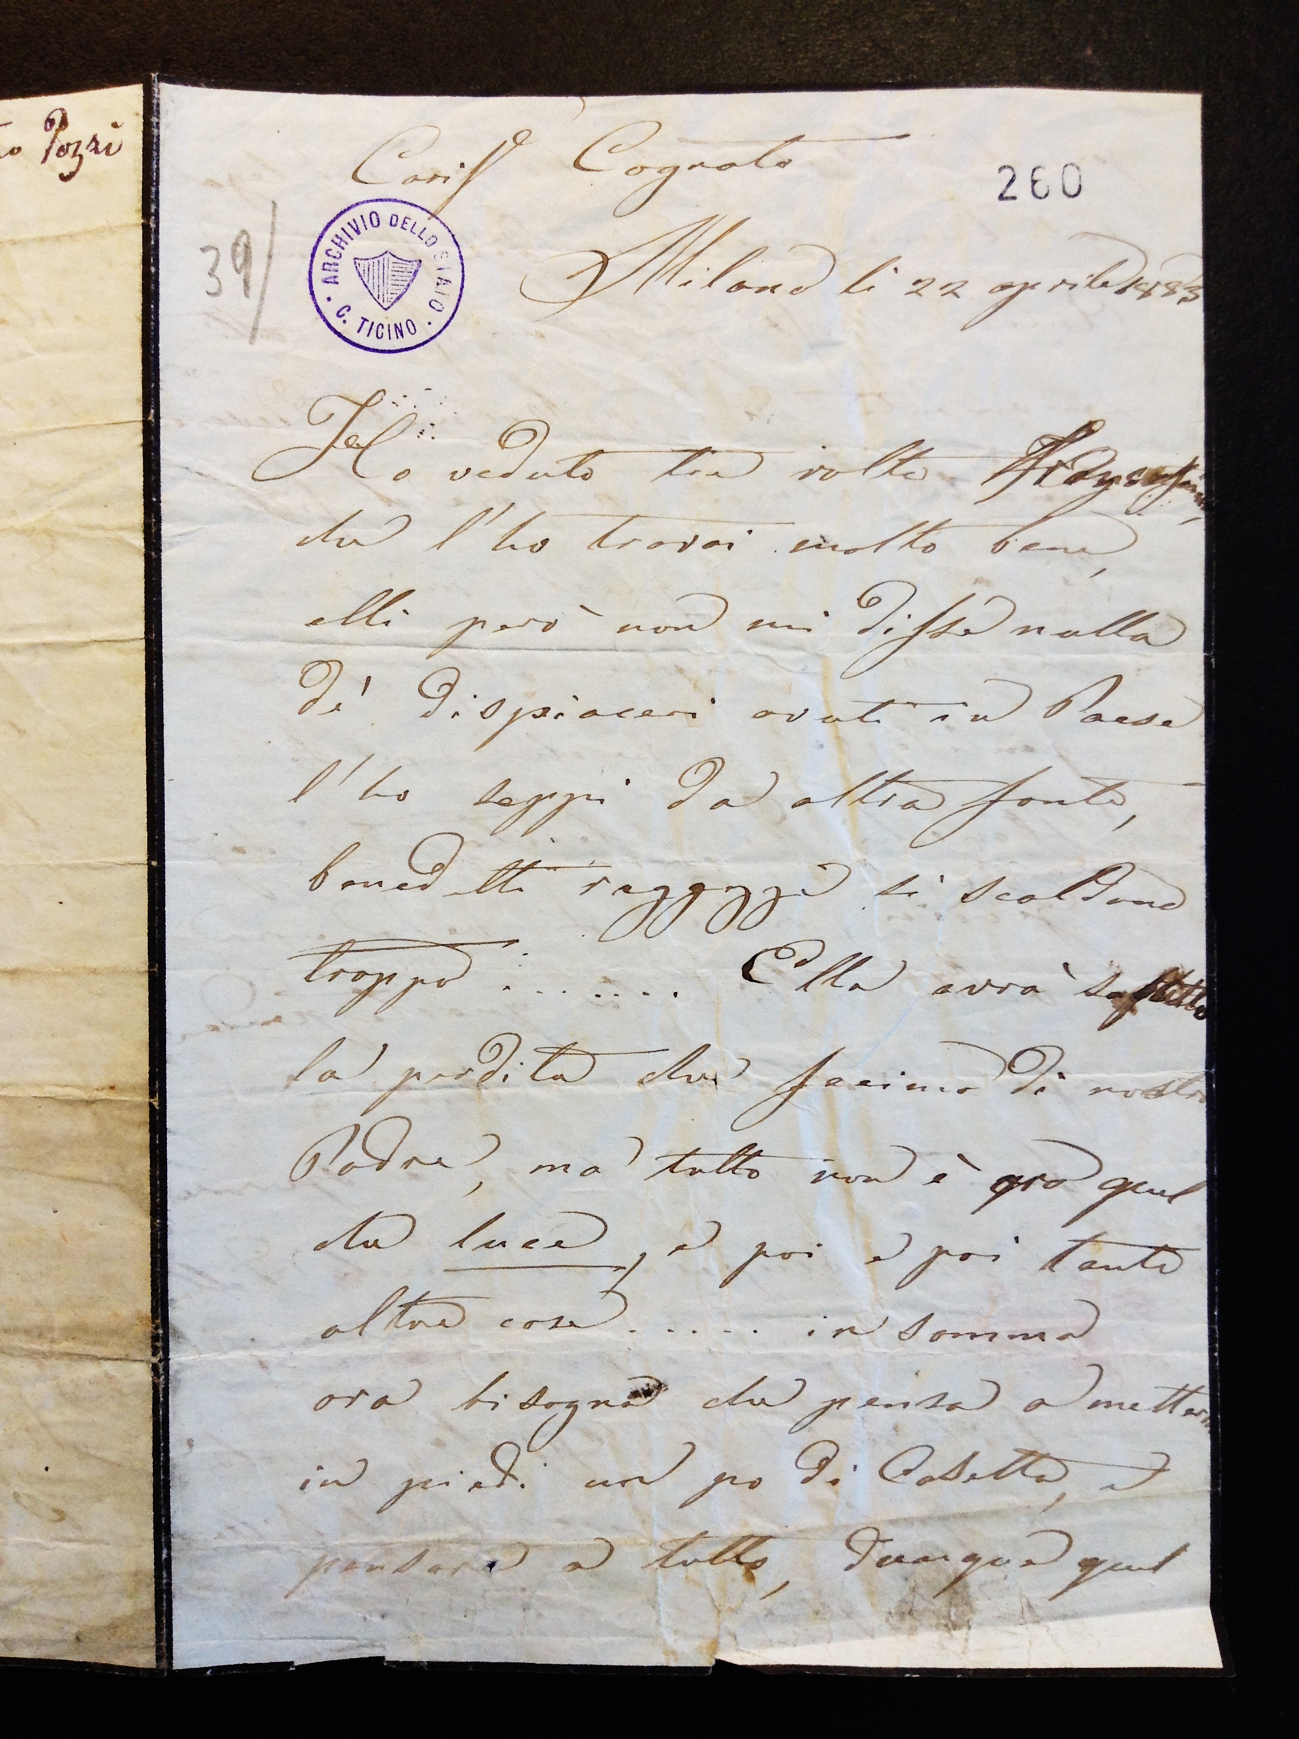 to Pozzi
Cariss Cognato
260
39/
ARCHIVIO DELLO STATO
C. TICINO
Milano li 22 aprile 1883
Ho veduto tre volte
che l'ho trovai molto bene,
elli però non mi disse nulla
de' dispiaceri avuti in Paese
l'ho seppi da altra fonte,
benedetti raggazzi si scaldano
troppo ....... Ella avrà
la perdita che fecimo di nostro
Padre, ma tutto non è oro quel
che luce, e poi e poi tante
altre cose ..... in somma
ora bisogna che pensa a metter
in piedi un po di Casetta, e
pensare a tutto, dunque quel